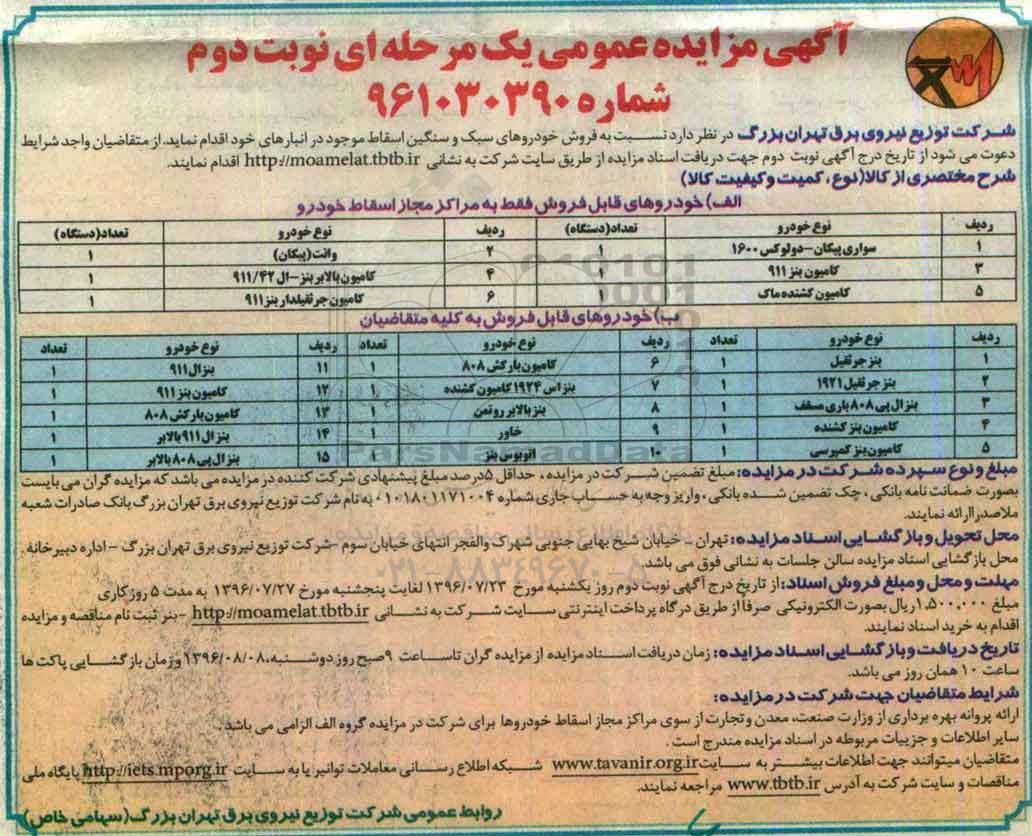 آگهی مزایده عمومی یک مرحله ای نوبت دوم
شماره ۹۶۱۰۳۰۳۹۰
شرکت توزیع نیروی برق تهران بزرگ در نظر دارد نسبت به فروش خودروهای سبک و سنگین اسقاط موجود در انبارهای خود اقدام نماید. از متقاضیان واجد شرایط
دعوت می شود از تاریخ درج آگهی نوبت دوم جهت دریافت اسناد مزایده از طریق سایت شرکت به نشانی http://moamelat.tbtb.ir اقدام نمایند.
شرح مختصری از کالا(نوع، کمیت و کیفیت کالا)
الف) خودروهای قابل فروش فقط به مراکز مجاز اسقاط خودرو
ردیف نوع خودرو تعداد(دستگاه) ردیف نوع خودرو تعداد(دستگاه)
۱ سواری پیکان-دولوکس ۱۶۰۰ ۱ ۲ وانت(پیکان) ۱
۳ کامیون بنز ۹۱۱ ۱ ۴ کامیون بالابر بنز-ال ۹۱۱/۴۲ ۱
۵ کامیون کشنده ماک ۱ ۶ کامیون جرثقیلدار بنز ۹۱۱ ۱
ب) خودروهای قابل فروش به کلیه متقاضیان
ردیف نوع خودرو تعداد ردیف نوع خودرو تعداد ردیف نوع خودرو تعداد
۱ بنز جرثقیل ۱ ۶ کامیون بارکش ۸۰۸ ۱ ۱۱ بنز ال ۹۱۱ ۱
۲ بنز جرثقیل ۱۹۲۱ ۱ ۷ بنز اس ۱۹۲۴ کامیون کشنده ۱ ۱۲ کامیون بنز ۹۱۱ ۱
۳ بنز ال پی ۸۰۸ باری مسقف ۱ ۸ بنز بالابر روتمن ۱ ۱۳ کامیون بارکش ۸۰۸ ۱
۴ کامیون بنز کشنده ۱ ۹ خاور ۱ ۱۴ بنز ال ۹۱۱ بالابر ۱
۵ کامیون بنز کمپرسی ۱ ۱۰ اتوبوس بنز ۱ ۱۵ بنز ال پی ۸۰۸ بالابر ۱
ParsNamadData
مبلغ و نوع سپرده شرکت در مزایده: مبلغ تضمین شرکت در مزایده، حداقل ۵درصد مبلغ پیشنهادی شرکت کننده در مزایده می باشد که مزایده گران می بایست
بصورت ضمانت نامه بانکی، چک تضمین شده بانکی، واریز وجه به حساب جاری شماره ۰۱۰۱۸۰۱۱۷۱۰۰۴ به نام شرکت توزیع نیروی برق تهران بزرگ بانک صادرات شعبه
ملاصدرا ارائه نمایند.
محل تحویل و بازگشایی اسناد مزایده: تهران - خیابان شیخ بهایی جنوبی شهرک والفجر انتهای خیابان سوم -شرکت توزیع نیروی برق تهران بزرگ - اداره دبیرخانه.
محل بازگشایی اسناد مزایده سالن جلسات به نشانی فوق می باشد.
۰۲۱-۸۸۳۴۹۶۷۰-۵
مهلت و محل و مبلغ فروش اسناد: از تاریخ درج آگهی نوبت دوم روز یکشنبه مورخ ۱۳۹۶/۰۷/۲۳ لغایت پنجشنبه مورخ ۱۳۹۶/۰۷/۲۷ به مدت ۵ روز کاری
مبلغ ۱،۵۰۰،۰۰۰ ریال بصورت الکترونیکی صرفاً از طریق درگاه پرداخت اینترنتی سایت شرکت به نشانی http://moamelat.tbtb.ir -بنر ثبت نام مناقصه و مزایده
اقدام به خرید اسناد نمایند.
تاریخ دریافت و بازگشایی اسناد مزایده: زمان دریافت اسناد مزایده از مزایده گران تا ساعت ۹ صبح روز دوشنبه، ۱۳۹۶/۰۸/۰۸ و زمان بازگشایی پاکت ها
ساعت ۱۰ همان روز می باشد.
شرایط متقاضیان جهت شرکت در مزایده:
ارائه پروانه بهره برداری از وزارت صنعت، معدن و تجارت از سوی مراکز مجاز اسقاط خودروها برای شرکت در مزایده گروه الف الزامی می باشد.
سایر اطلاعات و جزییات مربوطه در اسناد مزایده مندرج است.
متقاضیان میتوانند جهت اطلاعات بیشتر به سایت www.tavanir.org.ir شبکه اطلاع رسانی معاملات توانیر یا به سایت http://iets.mporg.ir پایگاه ملی
مناقصات و سایت شرکت به آدرس www.tbtb.ir مراجعه نمایند.
روابط عمومی شرکت توزیع نیروی برق تهران بزرگ(سهامی خاص)